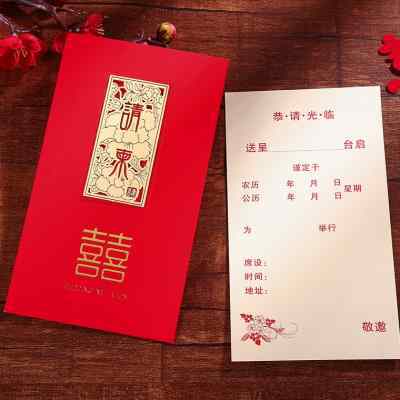 請
柬
囍
恭·请·光·临
送呈 台启
谨定于
农历 年 月 日
公历 年 月 日 星期
为 举行
席设：
时间：
地址：
敬邀